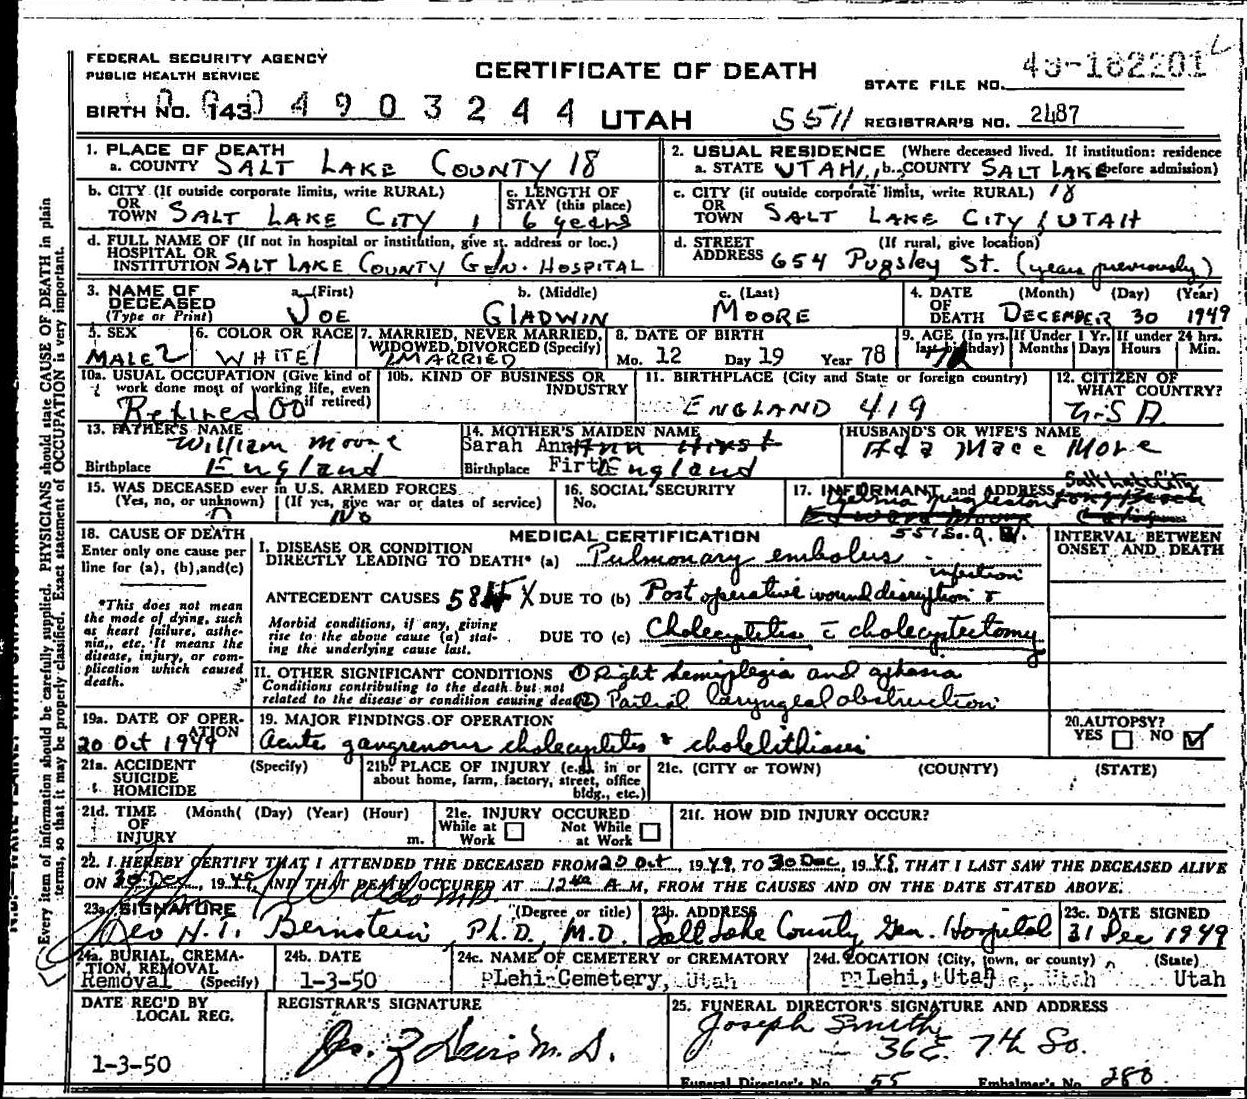 FEDERAL SECURITY AGENCY
PUBLIC HEALTH SERVICE
CERTIFICATE OF DEATH
STATE FILE NO. 49-162201
BIRTH NO. 143 0004903244 UTAH 5511 REGISTRAR'S NO. 2487
1. PLACE OF DEATH
a. COUNTY SALT LAKE COUNTY 18
2. USUAL RESIDENCE (Where deceased lived. If institution: residence before admission)
a. STATE UTAH b. COUNTY SALT LAKE
b. CITY (If outside corporate limits, write RURAL)
OR TOWN SALT LAKE CITY 1
c. LENGTH OF STAY (this place) 6 years
c. CITY (if outside corporate limits, write RURAL) 18
OR TOWN SALT LAKE CITY, UTAH
d. FULL NAME OF (If not in hospital or institution, give st. address or loc.)
HOSPITAL OR INSTITUTION SALT LAKE COUNTY GEN. HOSPITAL
d. STREET ADDRESS (If rural, give location)
654 Pugsley St. (years previously)
3. NAME OF DECEASED (Type or Print)
a. (First) JOE
b. (Middle) GLADWIN
c. (Last) MOORE
4. DATE OF DEATH (Month) (Day) (Year)
DECEMBER 30 1949
5. SEX MALE 2
6. COLOR OR RACE WHITE 1
7. MARRIED, NEVER MARRIED, WIDOWED, DIVORCED (Specify) MARRIED
8. DATE OF BIRTH Mo. 12 Day 19 Year 78
9. AGE (In yrs. last birthday) If Under 1 Yr. Months Days If under 24 hrs. Hours Min.
10a. USUAL OCCUPATION (Give kind of work done most of working life, even if retired)
Retired 00
10b. KIND OF BUSINESS OR INDUSTRY
11. BIRTHPLACE (City and State or foreign country)
ENGLAND 419
12. CITIZEN OF WHAT COUNTRY?
U.S.A.
13. FATHER'S NAME William Moore
Birthplace England
14. MOTHER'S MAIDEN NAME
Sarah Ann Firth
Birthplace England
HUSBAND'S OR WIFE'S NAME
Ada Mace More
15. WAS DECEASED ever in U.S. ARMED FORCES
(Yes, no, or unknown) (If yes, give war or dates of service)
No
16. SOCIAL SECURITY No.
17. INFORMANT and ADDRESS
Salt Lake City
551 So. 9. W.
18. CAUSE OF DEATH
Enter only one cause per line for (a), (b), and (c)
*This does not mean the mode of dying, such as heart failure, asthenia, etc. It means the disease, injury, or complication which caused death.
MEDICAL CERTIFICATION
INTERVAL BETWEEN ONSET AND DEATH
I. DISEASE OR CONDITION DIRECTLY LEADING TO DEATH* (a) Pulmonary embolus
ANTECEDENT CAUSES 584X DUE TO (b) Post operative wound disruption & infection
Morbid conditions, if any, giving rise to the above cause (a) stating the underlying cause last.
DUE TO (c) Cholecystitis c cholecystectomy
II. OTHER SIGNIFICANT CONDITIONS
Conditions contributing to the death but not related to the disease or condition causing death
(1) Right hemiplegia and aphasia
(2) Partial laryngeal obstruction
19a. DATE OF OPERATION
20 Oct 1949
19. MAJOR FINDINGS OF OPERATION
Acute gangrenous cholecystitis & cholelithiasis
20. AUTOPSY?
YES NO ✓
21a. ACCIDENT SUICIDE HOMICIDE (Specify)
21b. PLACE OF INJURY (e.g. in or about home, farm, factory, street, office bldg., etc.)
21c. (CITY or TOWN) (COUNTY) (STATE)
21d. TIME OF INJURY (Month) (Day) (Year) (Hour) m.
21e. INJURY OCCURED
While at Work Not While at Work
21f. HOW DID INJURY OCCUR?
22. I HEREBY CERTIFY THAT I ATTENDED THE DECEASED FROM 20 Oct, 1949, TO 30 Dec, 1949, THAT I LAST SAW THE DECEASED ALIVE
ON 30 Dec, 1949, AND THAT DEATH OCCURED AT 12 40 A M, FROM THE CAUSES AND ON THE DATE STATED ABOVE.
23a. SIGNATURE (Degree or title)
Geo H. T. Bernstein, Ph.D., M.D.
23b. ADDRESS
Salt Lake County Gen. Hospital
23c. DATE SIGNED
31 Dec 1949
24a. BURIAL, CREMATION, REMOVAL (Specify)
Removal
24b. DATE
1-3-50
24c. NAME OF CEMETERY or CREMATORY
Lehi Cemetery, Utah
24d. LOCATION (City, town, or county) (State)
Lehi, Utah Utah
DATE REC'D BY LOCAL REG.
1-3-50
REGISTRAR'S SIGNATURE
25. FUNERAL DIRECTOR'S SIGNATURE AND ADDRESS
Joseph Smith
36 E. 7th So.
Funeral Director's No. 55 Embalmer's No. 280
Every item of information should be carefully supplied. PHYSICIANS should state CAUSE OF DEATH in plain
terms, so that it may be properly classified. Exact statement of OCCUPATION is very important.